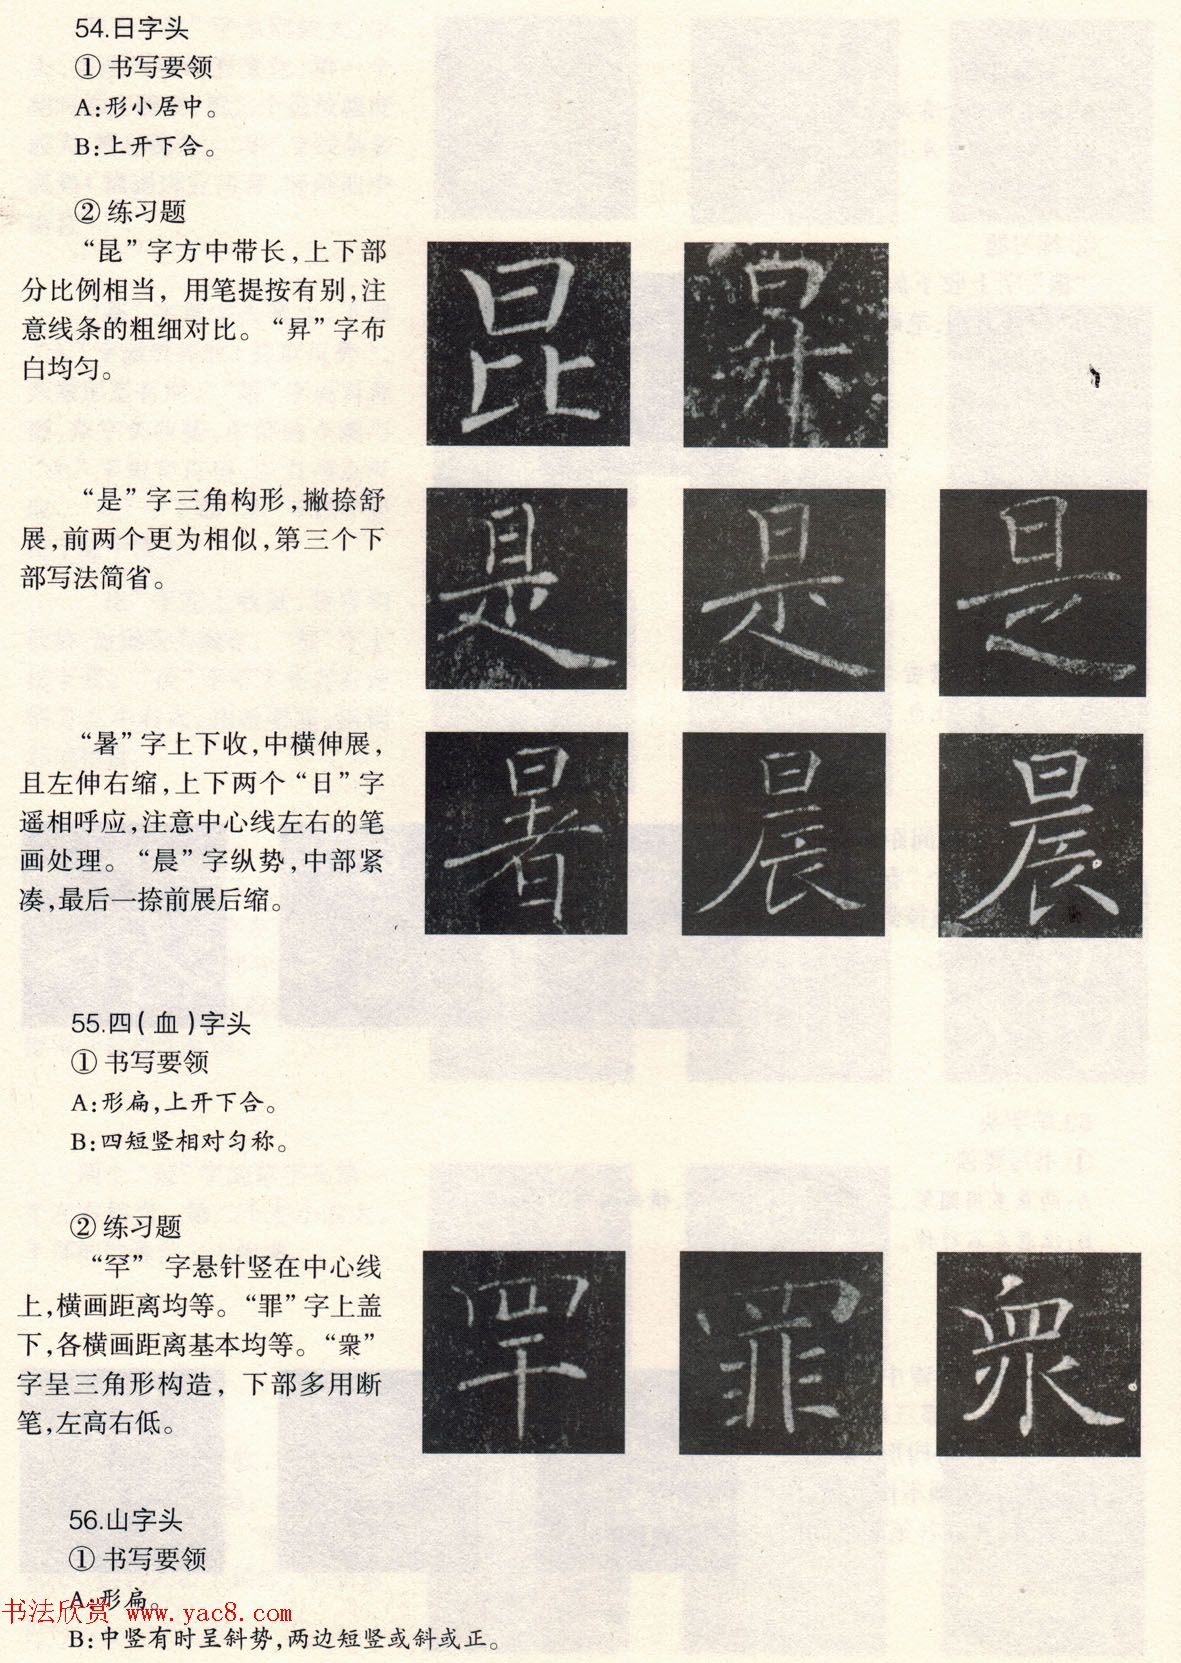 54.日字头
① 书写要领
A:形小居中。
B:上开下合。
② 练习题
“昆”字方中带长,上下部
分比例相当,用笔提按有别,注
意线条的粗细对比。“昇”字布
白均匀。
昆 昇
“是”字三角构形,撇捺舒
展,前两个更为相似,第三个下
部写法简省。
是 是 是
“暑”字上下收,中横伸展,
且左伸右缩,上下两个“日”字
遥相呼应,注意中心线左右的笔
画处理。“晨”字纵势,中部紧
凑,最后一捺前展后缩。
暑 晨 晨
55.四(血)字头
① 书写要领
A:形扁,上开下合。
B:四短竖相对匀称。
② 练习题
“罕”字悬针竖在中心线
上,横画距离均等。“罪”字上盖
下,各横画距离基本均等。“衆”
字呈三角形构造,下部多用断
笔,左高右低。
罕 罪 衆
56.山字头
① 书写要领
A:形扁。
书法欣赏 www.yac8.com
B:中竖有时呈斜势,两边短竖或斜或正。